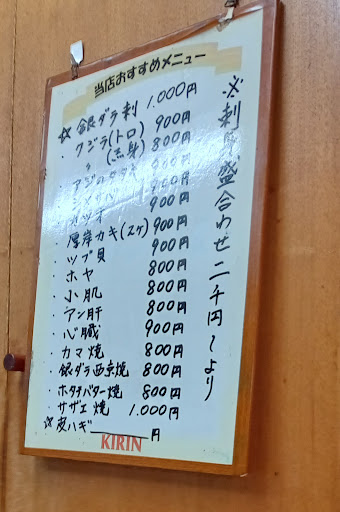 当店おすすめメニュー
☆銀ダラ刺 1.000円
・クジラ(トロ) 900円
・〃(赤身) 800円
900円
900円
900円
・厚岸カキ(2ヶ) 900円
・ツブ貝 900円
・ホヤ 800円
・小肌 800円
・アン肝 800円
・心臓 900円
・カマ焼 800円
・銀ダラ西京焼 800円
・ホタテバター焼 800円
・サザエ焼 1.000円
☆皮ハギ 円
※刺 盛合わせ二千円〜より
KIRIN